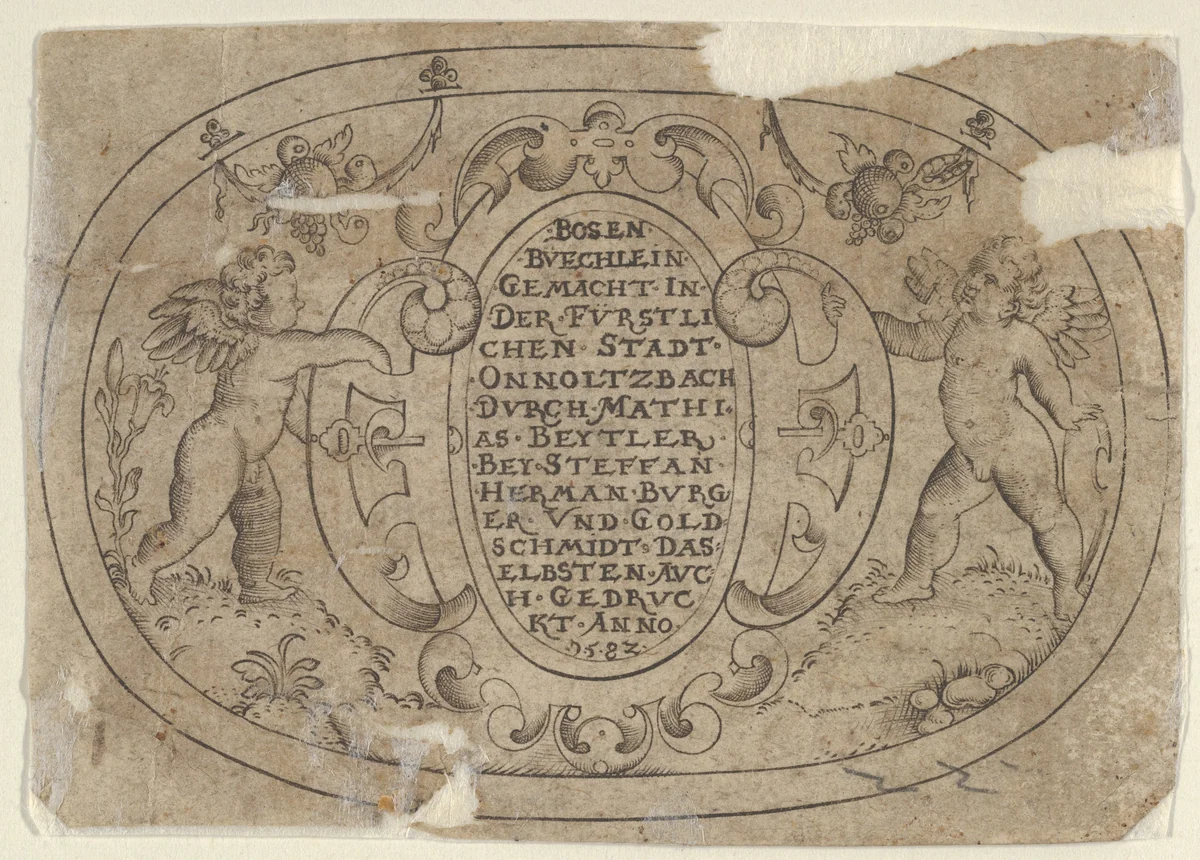 ·BOSEN·
·BVECHLEIN·
GEMACHT·IN·
DER·FÜRSTLI
CHEN·STADT·
·ONNOLTZBACH
DVRCH·MATHI·
AS·BEYTLER·
·BEY·STEFFAN·
·HERMAN·BVRG
ER·VND·GOLD·
SCHMIDT·DAS:
ELBSTEN·AVC
H·GEDRVC
KT·ANNO·
·1582·